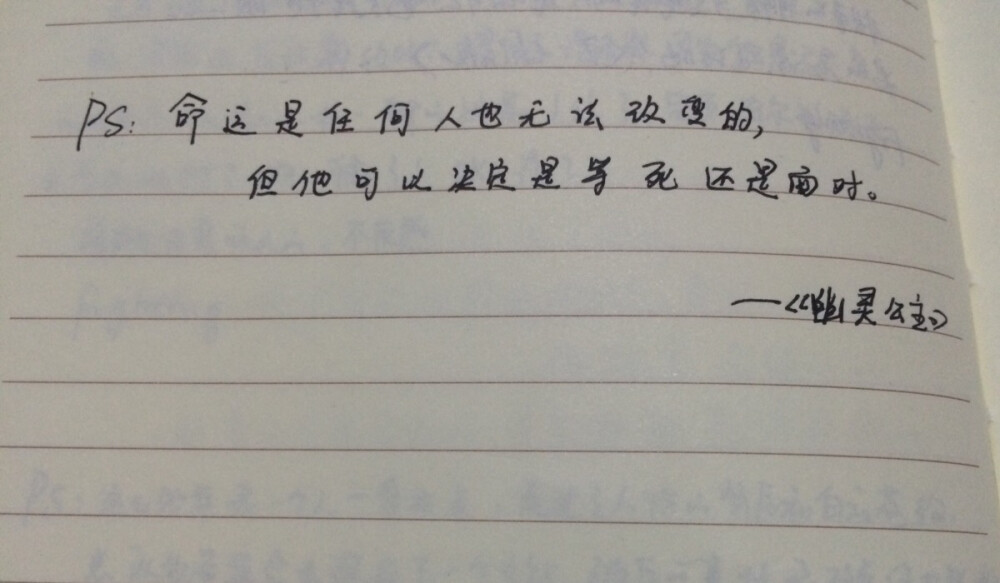 PS: 命运是任何人也无法改变的,
但他可以决定是等死还是面对。
——《幽灵公主》